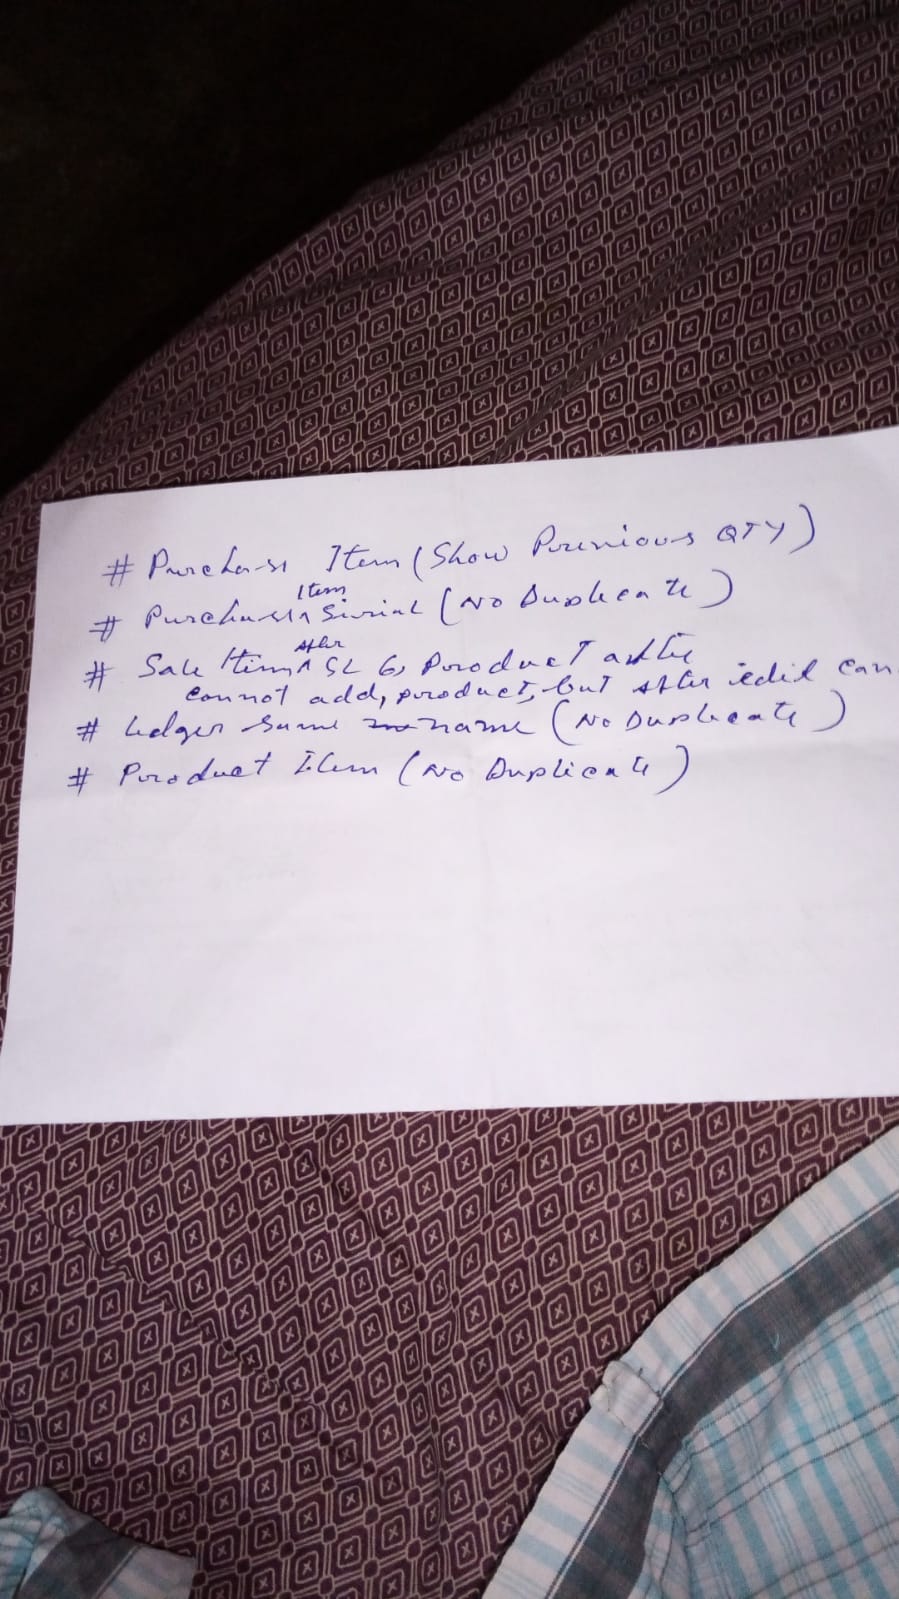 # Purchase Item (Show Previous QTY)
# Purchase Item Sirial (No Duplicate)
# Sale Item After SL 6, Product
cannot add, product, but After edit can
# Ledger Same name (No Duplicate)
# Product Item (No Duplicate)